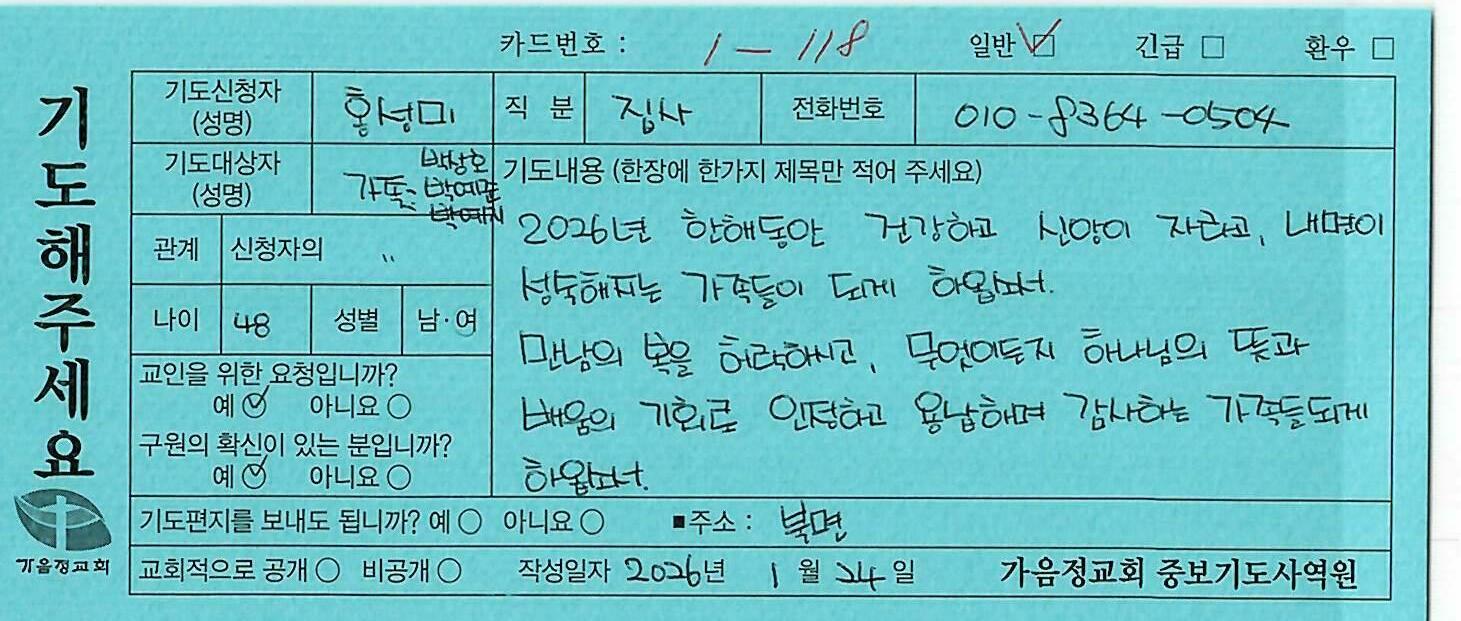 카드번호 : 1 - 118 일반 ☑ 긴급 □ 환우 □
기도해주세요
기도신청자 (성명) 홍성미 직 분 집사 전화번호 010-8364-0504
기도대상자 (성명) 가족: 박상호 박예은 박예지
관계 신청자의 〃
나이 48 성별 남·여
교인을 위한 요청입니까?
예 ☑ 아니요 ○
구원의 확신이 있는 분입니까?
예 ☑ 아니요 ○
기도내용 (한장에 한가지 제목만 적어 주세요)
2026년 한해동안 건강하고 신앙이 자라고, 내면이
성숙해지는 가족들이 되게 하옵소서.
만남의 복을 허락하시고, 무엇이든지 하나님의 뜻과
배움의 기회로 인정하고 용납하며 감사하는 가족들되게
하옵소서.
기도편지를 보내도 됩니까? 예 ○ 아니요 ○ ■주소 : 북면
교회적으로 공개 ○ 비공개 ○ 작성일자 2026년 1 월 24 일 가음정교회 중보기도사역원
가음정교회